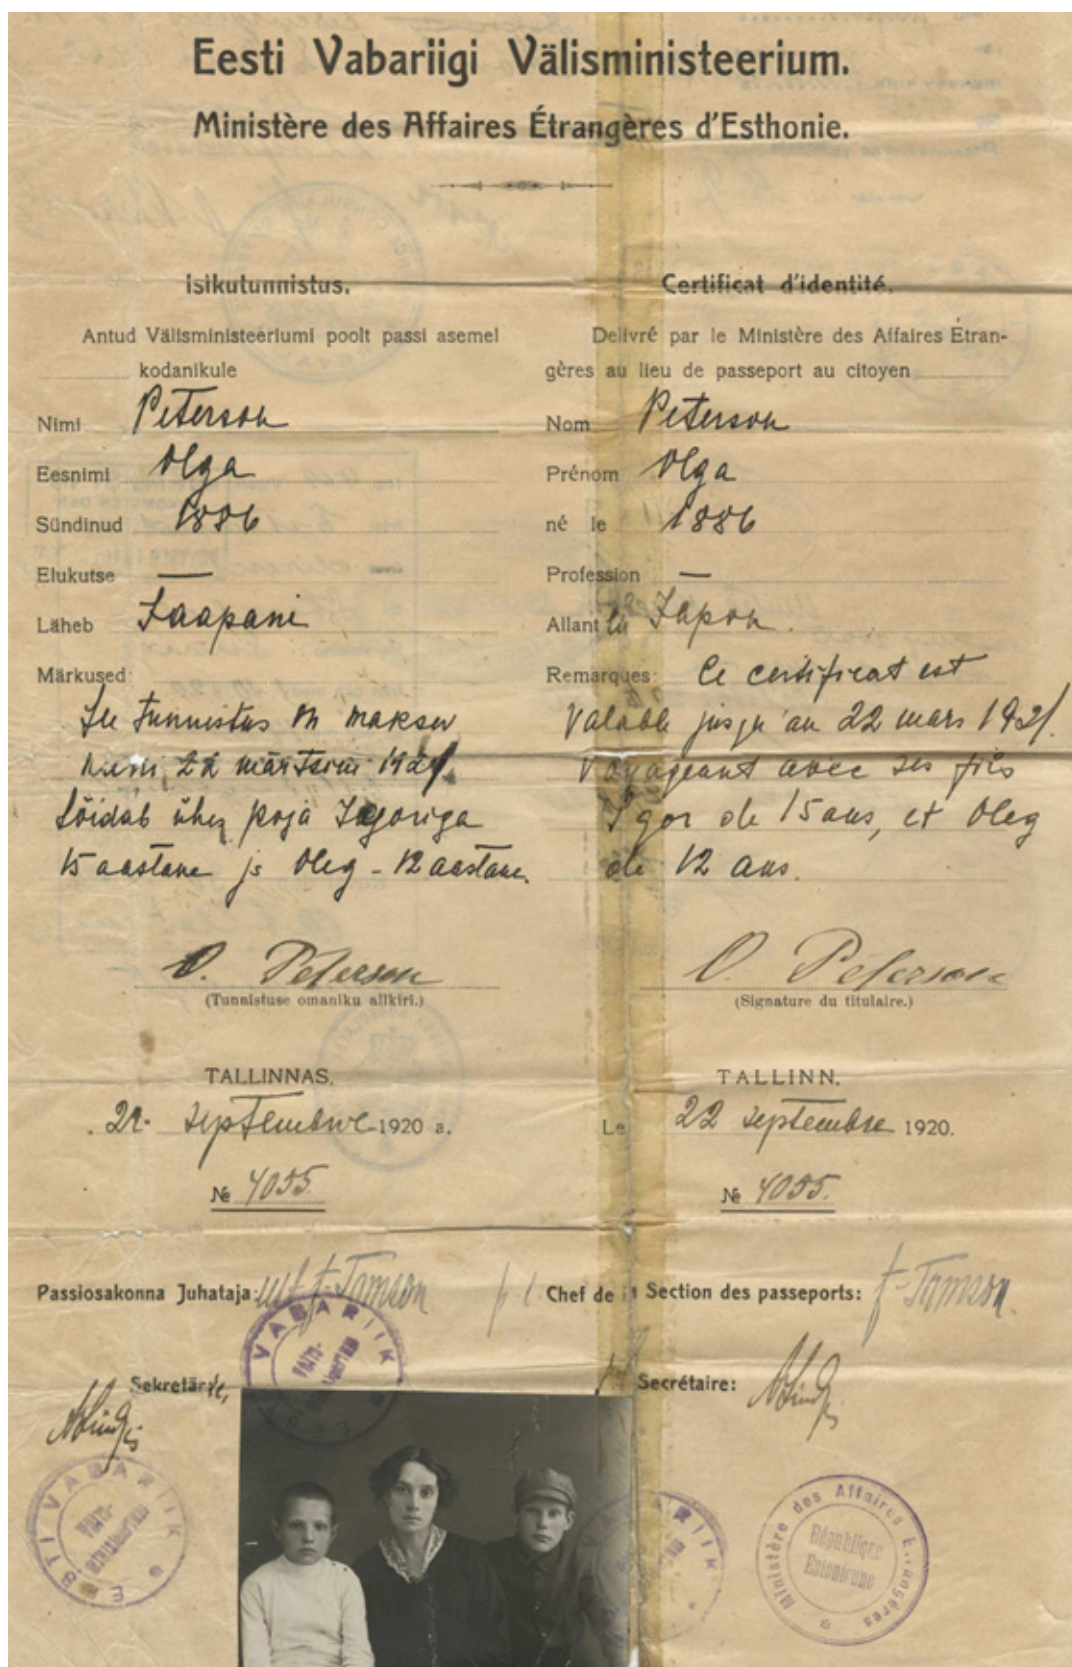 Eesti Vabariigi Välisministeerium.
Ministère des Affaires Étrangères d'Esthonie.
Isikutunnistus.
Antud Välisministeeriumi poolt passi asemel
kodanikule
Nimi Peterson
Eesnimi Olga
Sündinud 1886
Elukutse —
Läheb Jaapani
Märkused:
See tunnistus on maksev
kuni 22 märtsini 1921.
Sõidab ühes poja Igoriga
15 aastane ja Oleg - 12 aastane.
O. Peterson
(Tunnistuse omaniku allkiri.)
TALLINNAS,
22. septembre 1920 a.
№ 4055.
Passiosakonna Juhataja: J. Tamson
Sekretär:
Certificat d'identité.
Delivré par le Ministère des Affaires Étran-
gères au lieu de passeport au citoyen
Nom Peterson
Prénom Olga
né le 1886
Profession —
Allant au Japon.
Remarques: Ce certificat est
valable jusqu'au 22 mars 1921.
Voyageant avec ses fils
Igor de 15 ans, et Oleg
de 12 ans.
O. Peterson
(Signature du titulaire.)
TALLINN.
Le 22 septembre 1920.
№ 4055.
Chef de la Section des passeports: J. Tamson.
Secrétaire:
EESTI VABARIIK
Ministère des Affaires Etrangères
République
Estonienne